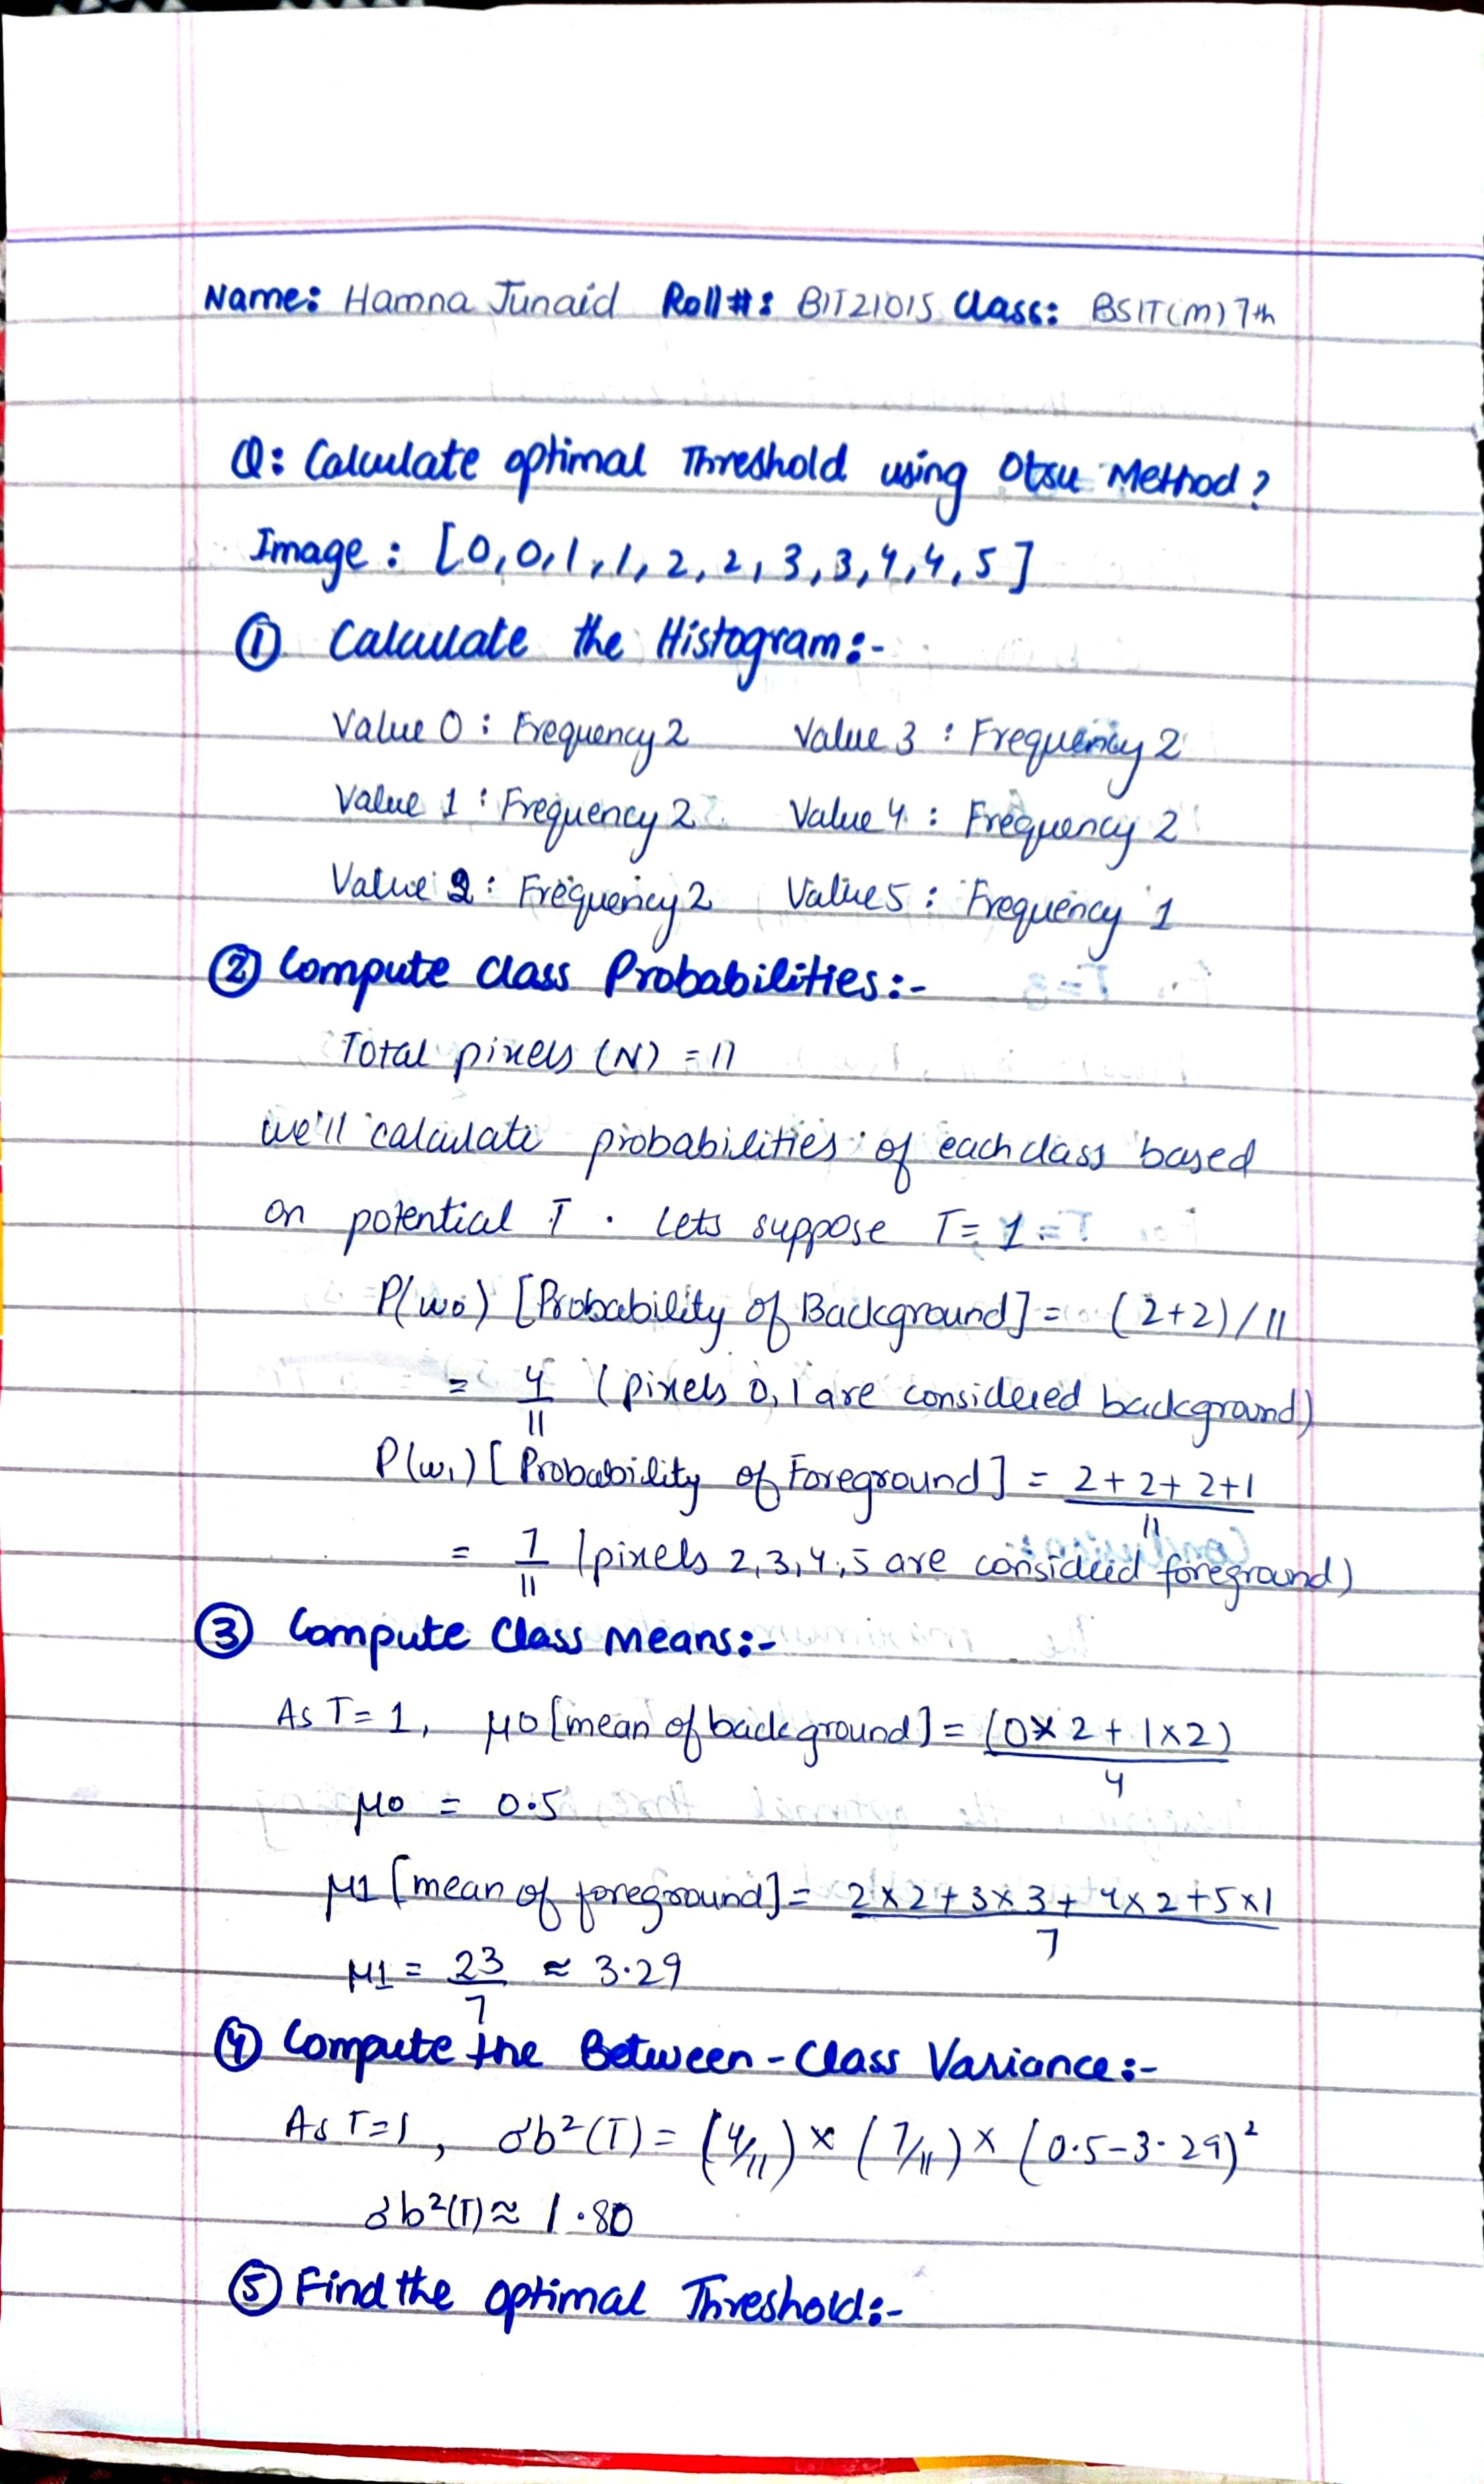 Name: Hamna Junaid Roll#: BIT21015 Class: BSIT(M) 7th
Q: Calculate optimal Threshold using Otsu Method?
Image : [0,0,1,1,2,2,3,3,4,4,5]
① Calculate the Histogram:-
Value 0 : Frequency 2 Value 3 : Frequency 2
Value 1 : Frequency 2 Value 4 : Frequency 2
Value 2 : Frequency 2 Value 5 : Frequency 1
② Compute Class Probabilities:-
Total pixels (N) = 11
we'll calculate probabilities of each class based
on potential T . Lets suppose T= 1
P(w0) [Probability of Background] = (2+2)/11
= 4/11 (pixels 0,1 are considered background)
P(w1) [Probability of Foreground] = 2+2+2+1/11
= 7/11 (pixels 2,3,4,5 are considered foreground)
③ Compute Class Means:-
As T= 1, μ0 [mean of background] = (0×2+1×2)/4
μ0 = 0.5
μ1 [mean of foreground] = 2×2+3×3+4×2+5×1/7
μ1 = 23/7 ≈ 3.29
④ Compute the Between-Class Variance:-
As T=1, σb²(T) = (4/11) × (7/11) × (0.5-3.29)²
σb²(T) ≈ 1.80
⑤ Find the optimal Threshold:-